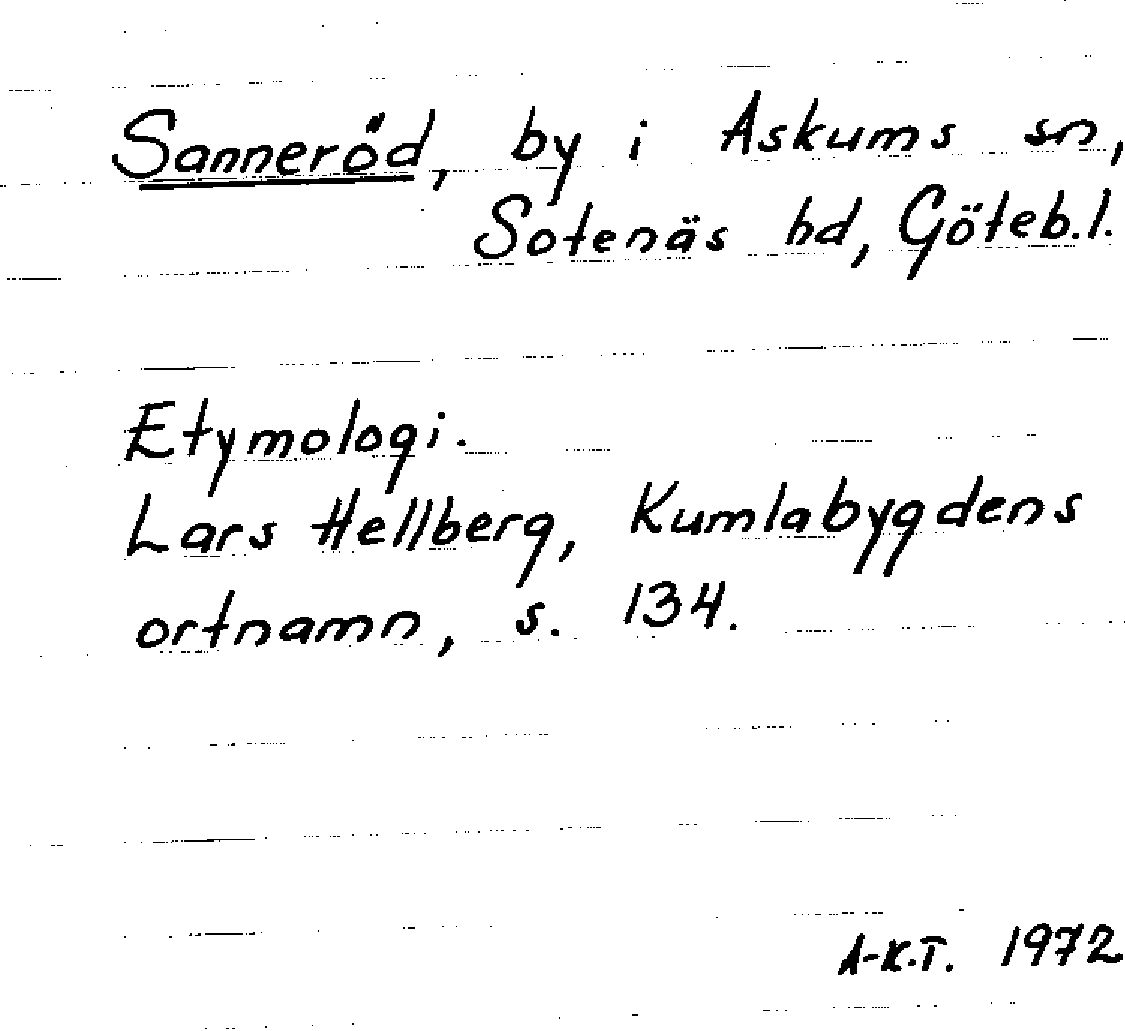 Sanneröd, by i Askums sn,
Sotenäs hd, Göteb.l.
Etymologi.
Lars Hellberg, Kumlabygdens
ortnamn, s. 134.
A-K.T. 1972